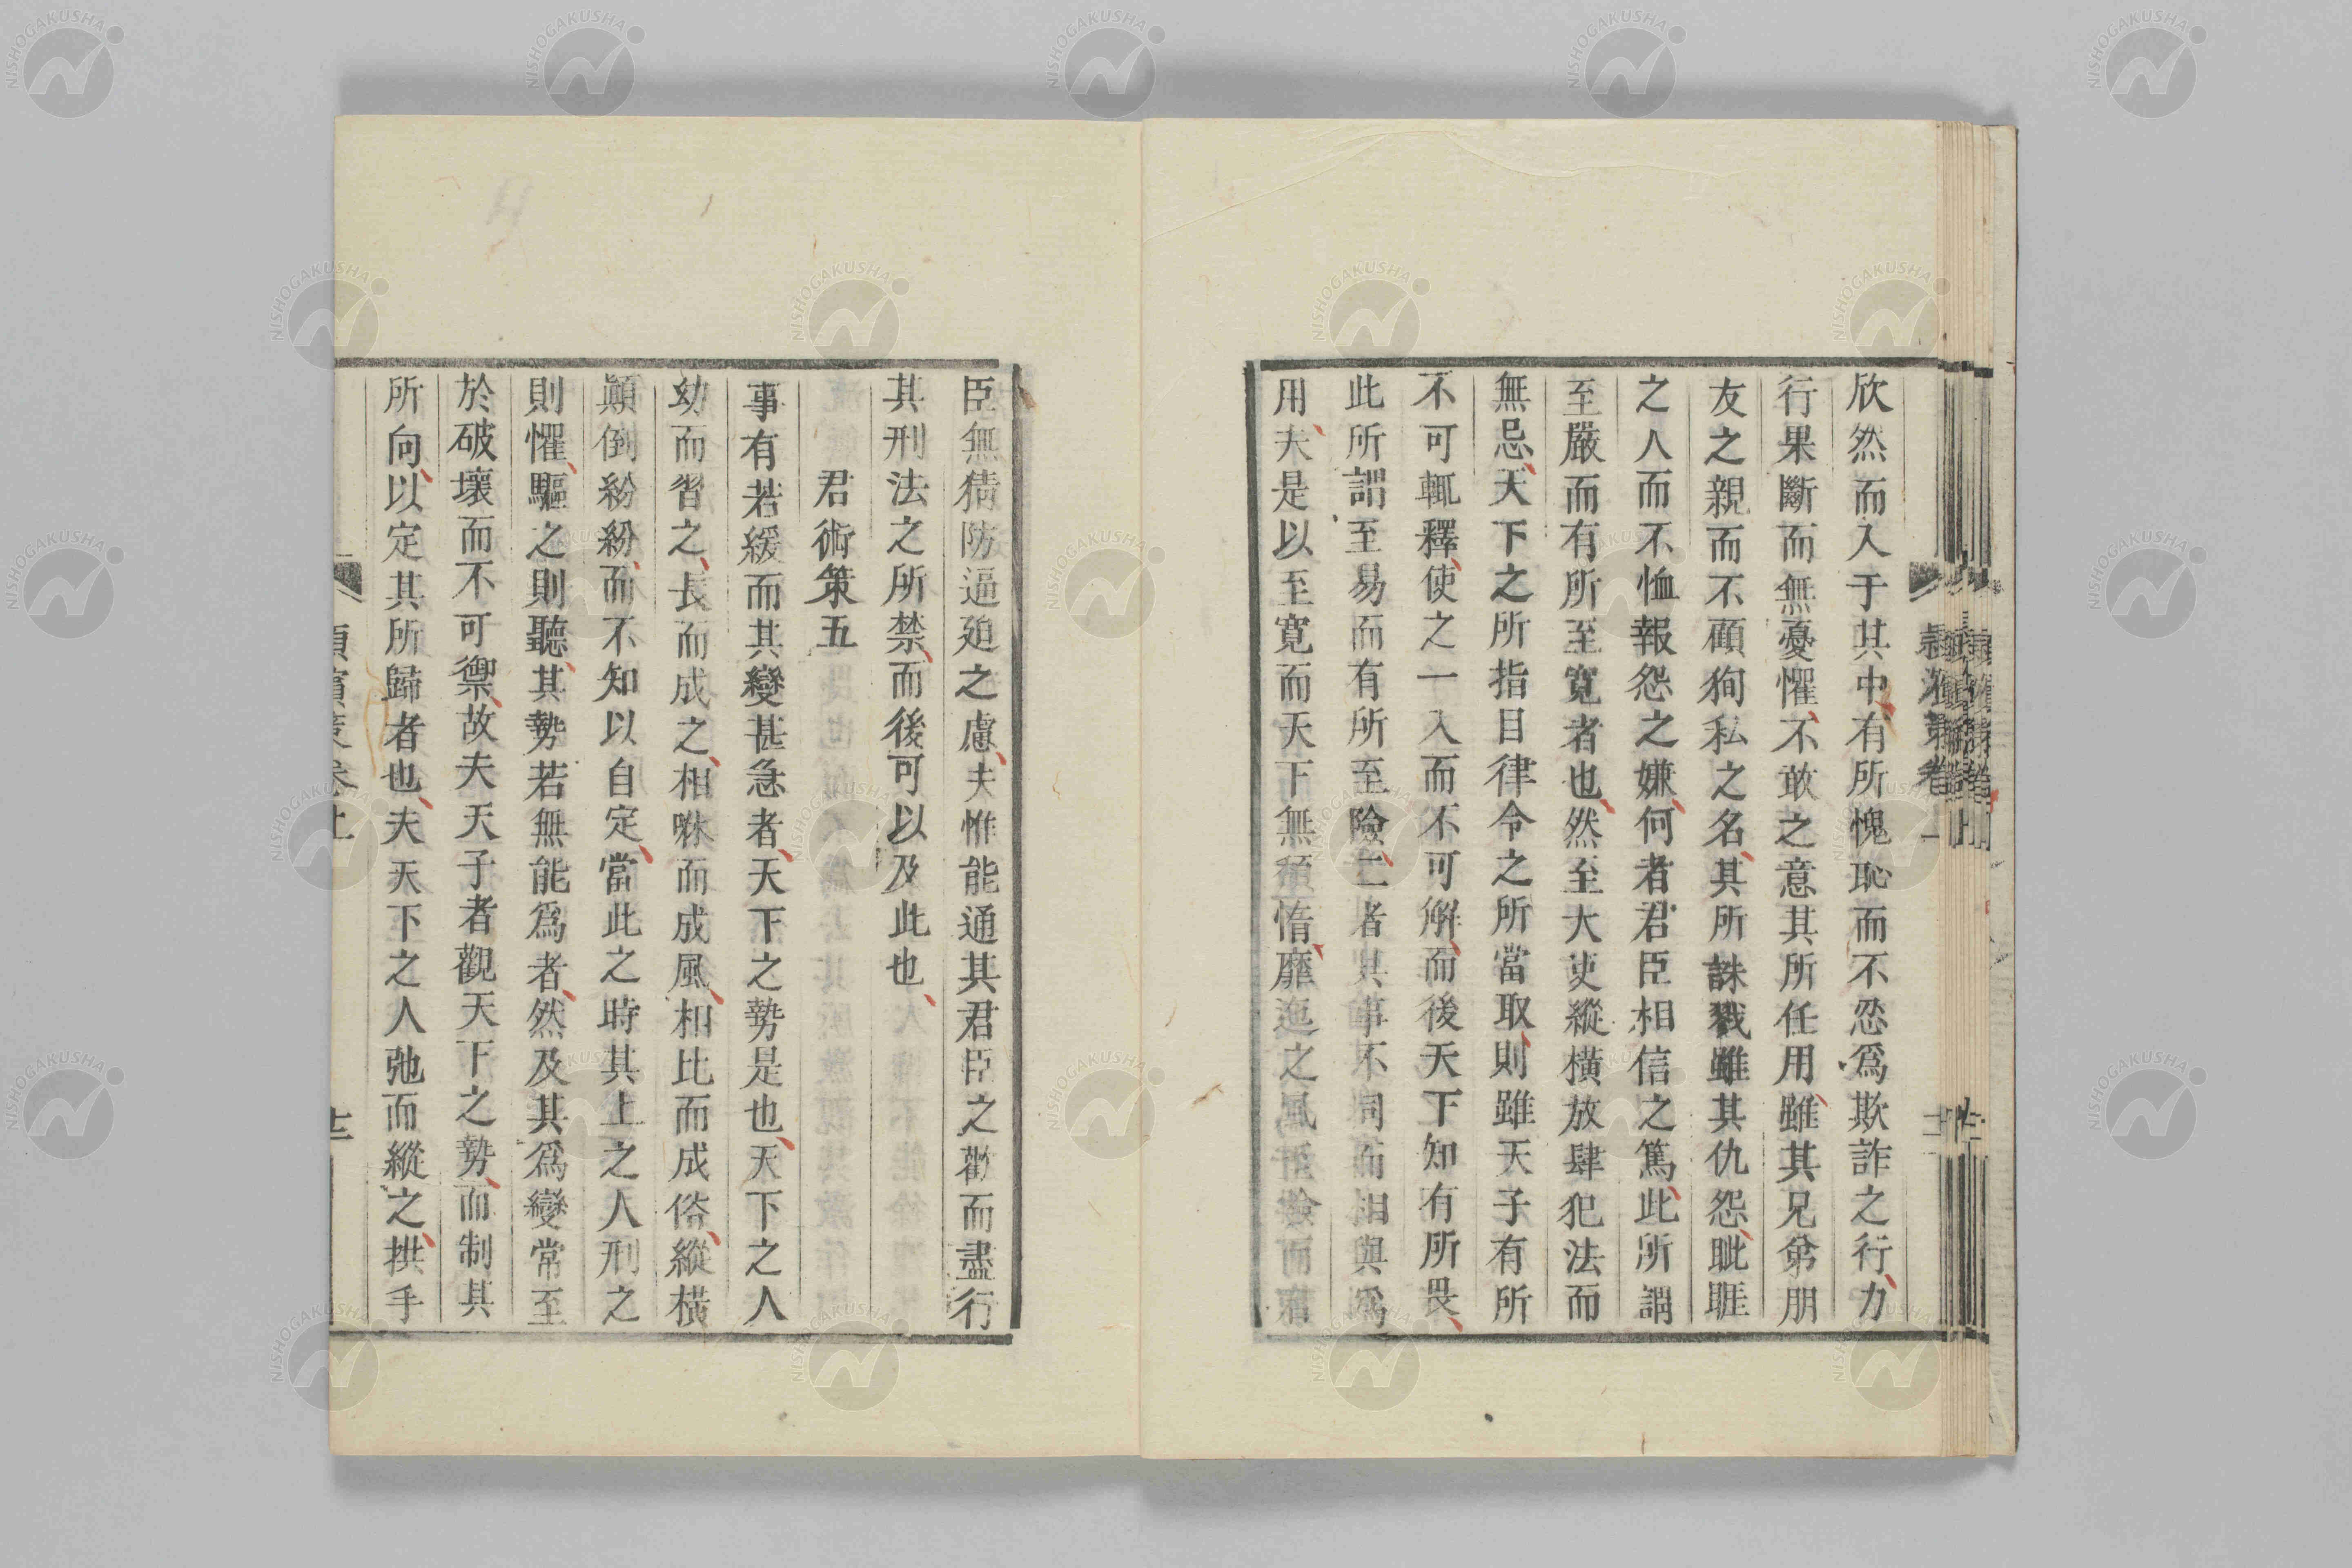 欣然而入于其中有所愧恥而不忍爲欺詐之行力
行果斷而無憂懼不敢之意其所任用雖其兄弟朋
友之親而不顧狥私之名其所誅戮雖其仇怨眦睚
之人而不恤報怨之嫌何者君臣相信之篤此所謂
至嚴而有所至寛者也然至大吏縱橫放肆犯法而
無忌天下之所指目律令之所當取則雖天子有所
不可輒釋使之一入而不可解而後天下知有所畏
此所謂至易而有所至險二者其事不同而相與爲
用夫是以至寛而天下無頹惰靡迤之風至險而君
臣無猜防逼廹之慮夫惟能通其君臣之歡而盡行
其刑法之所禁而後可以及此也
君術策五
事有若緩而其變甚急者天下之勢是也天下之人
幼而習之長而成之相咻而成風相比而成俗縱橫
顚倒紛紛而不知以自定當此之時其上之人刑之
則懼驅之則聽其勢若無能爲者然及其爲變常至
於破壞而不可禦故夫天子者觀天下之勢而制其
所向以定其所歸者也夫天下之人弛而縱之拱手
NISHOGAKUSHA